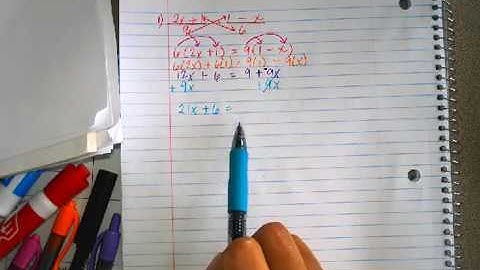 1) 2x + 1 1 - x
9 6
6(2x + 1) = 9(1 - x)
6(2x) + 6(1) = 9(1) - 9(x)
12x + 6 = 9 + 9x
+ 9x + 9x
21x + 6 =